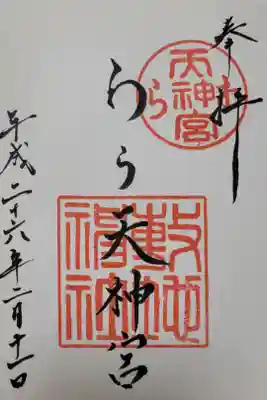 奉拝
わら天神宮
平成二十六年二月十一日
わら天神宮
敷地
神社